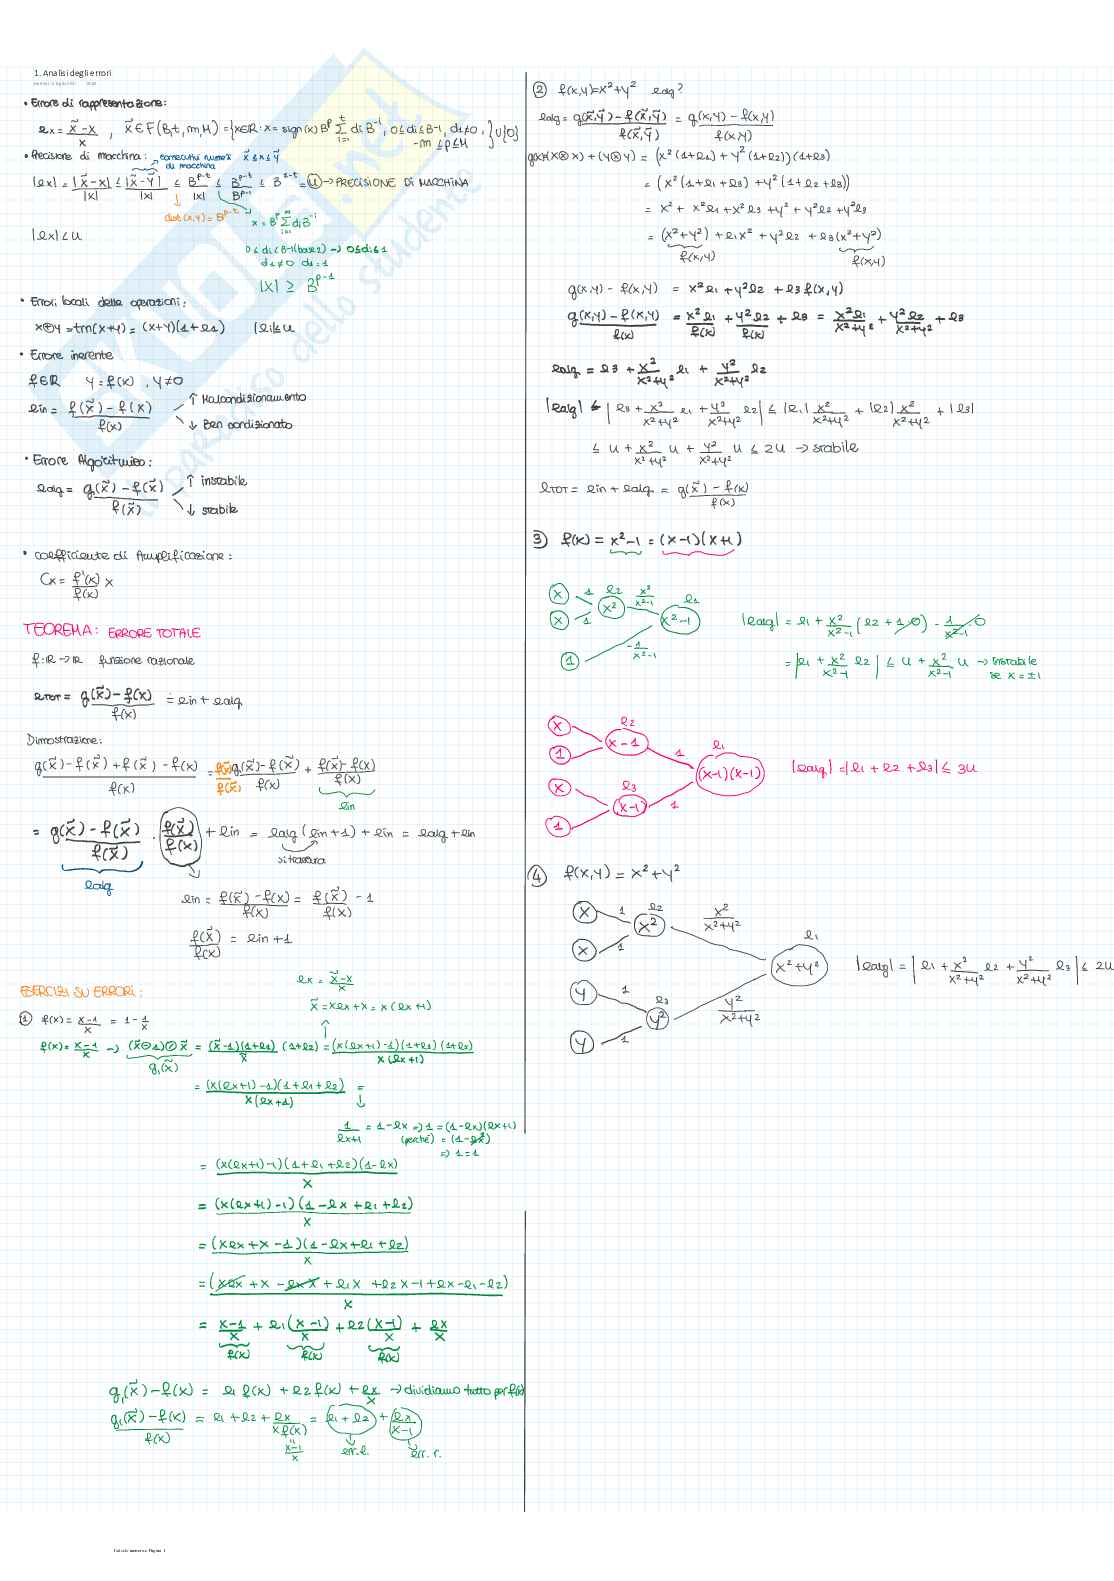 1. Analisi degli errori
• Errore di rappresentazione:
ex = (x̃ - x)/x , x̃ ∈ F(B,t,m,M) = {x∈R: x = sign(x) B^p Σ_{i=1}^{t} di B^-i, 0≤di≤B-1, d1≠0, -m≤p≤M} ∪ {0}
• Precisione di macchina: consecutivi numeri di macchina x̃ ≤ x ≤ ỹ
|ex| = |x̃-x|/|x| ≤ |x̃-ỹ|/|x| ≤ B^(p-t)/|x| ≤ B^(p-t)/B^(p-1) ≤ B^(1-t) = u → PRECISIONE DI MACCHINA
dist(x,y) = B^(p-t)
x = B^p Σ_{i=1}^{∞} di B^-i
|ex| < u
0 ≤ di < B-1 (base 2) → 0≤di≤1
d1≠0 d1=1
|x| ≥ B^(p-1)
• Errori locali delle operazioni:
x⊕y = trn(x+y) = (x+y)(1+e1) |ei|≤u
• Errore inerente
f∈R y = f(x), y≠0
ein = (f(x̃) - f(x))/f(x) ↑ Malcondizionamento
↓ Ben condizionato
• Errore Algoritmico:
ealg = (g(x̃) - f(x̃))/f(x̃) ↑ instabile
↓ stabile
• coefficiente di Amplificazione:
Cx = f'(x)/f(x) x
TEOREMA: ERRORE TOTALE
f: R → R funzione razionale
eTOT = (g(x̃) - f(x))/f(x) ≐ ein + ealg
Dimostrazione:
(g(x̃) - f(x̃) + f(x̃) - f(x))/f(x) = f(x̃)/f(x̃) (g(x̃) - f(x̃))/f(x) + (f(x̃) - f(x))/f(x)
ein
= (g(x̃) - f(x̃))/f(x̃) · f(x̃)/f(x) + ein = ealg (ein + 1) + ein = ealg + ein
si trascura
ealg
ein = (f(x̃) - f(x))/f(x) = f(x̃)/f(x) - 1
f(x̃)/f(x) = ein + 1
ESERCIZI SU ERRORI:
ex = (x̃ - x)/x
x̃ = xex + x = x(ex+1)
① f(x) = (x-1)/x = 1 - 1/x
f(x) = (x-1)/x → (x̃⊖1)⊘x̃ = (x̃-1)(1+e1)/x̃ (1+e2) = (x(ex+1)-1)(1+e1)(1+e2)/x(ex+1)
g1(x̃)
= (x(ex+1)-1)(1+e1+e2)/x(ex+1) =
1/(ex+1) = 1-ex => 1 = (1-ex)(ex+1)
(perché) = (1-ex²)
=> 1=1
= (x(ex+1)-1)(1+e1+e2)(1-ex)/x
= (x(ex+1)-1)(1-ex+e1+e2)/x
= (xex+x-1)(1-ex+e1+e2)/x
= (xex + x - exx + e1x + e2x - 1 + ex - e1 - e2)/x
= (x-1)/x + e1(x-1)/x + e2(x-1)/x + ex/x
f(x) f(x) f(x)
g1(x̃) - f(x) = e1 f(x) + e2 f(x) + ex/x → dividiamo tutto per f(x)
(g1(x̃) - f(x))/f(x) = e1 + e2 + ex/(x f(x)) = e1+e2 + ex/(x-1)
(x-1)/x err. a. err. r.
② f(x,y) = x²+y² ealg?
ealg = (g(x̃,ỹ) - f(x̃,ỹ))/f(x̃,ỹ) = (g(x,y) - f(x,y))/f(x,y)
g(x,y)=(x⊗x) + (y⊗y) = (x²(1+e1) + y²(1+e2))(1+e3)
= (x²(1+e1+e3) + y²(1+e2+e3))
= x² + x²e1 + x²e3 + y² + y²e2 + y²e3
= (x²+y²) + e1x² + y²e2 + e3(x²+y²)
f(x,y) f(x,y)
g(x,y) - f(x,y) = x²e1 + y²e2 + e3 f(x,y)
(g(x,y) - f(x,y))/f(x) = x²e1/f(x) + y²e2/f(x) + e3 = x²e1/(x²+y²) + y²e2/(x²+y²) + e3
ealg = e3 + x²/(x²+y²) e1 + y²/(x²+y²) e2
|ealg| ≤ |e3 + x²/(x²+y²) e1 + y²/(x²+y²) e2| ≤ |e1| x²/(x²+y²) + |e2| x²/(x²+y²) + |e3|
≤ u + x²/(x²+y²) u + y²/(x²+y²) u ≤ 2u → stabile
eTOT = ein + ealg = (g(x̃) - f(x))/f(x)
③ f(x) = x²-1 = (x-1)(x+1)
x 1 e2 x²/(x²-1) e1
x 1 x² x²-1
1 -1/(x²-1)
|ealg| = e1 + x²/(x²-1) (e2 + 1·0) - 1/(x²-1) 0
= |e1 + x²/(x²-1) e2| ≤ u + x²/(x²-1) u → instabile se x = ±1
x e2
1 x-1 1 e1
x e3 (x-1)(x-1)
1 (x-1) 1
|ealg| = |e1+e2+e3| ≤ 3u
④ f(x,y) = x²+y²
x 1 e2 x²/(x²+y²)
x 1 x² e1
y 1 e3 x²+y²
y 1 y² y²/(x²+y²)
|ealg| = |e1 + x²/(x²+y²) e2 + y²/(x²+y²) e3| ≤ 2u
Calcolo numerico Pagina 1